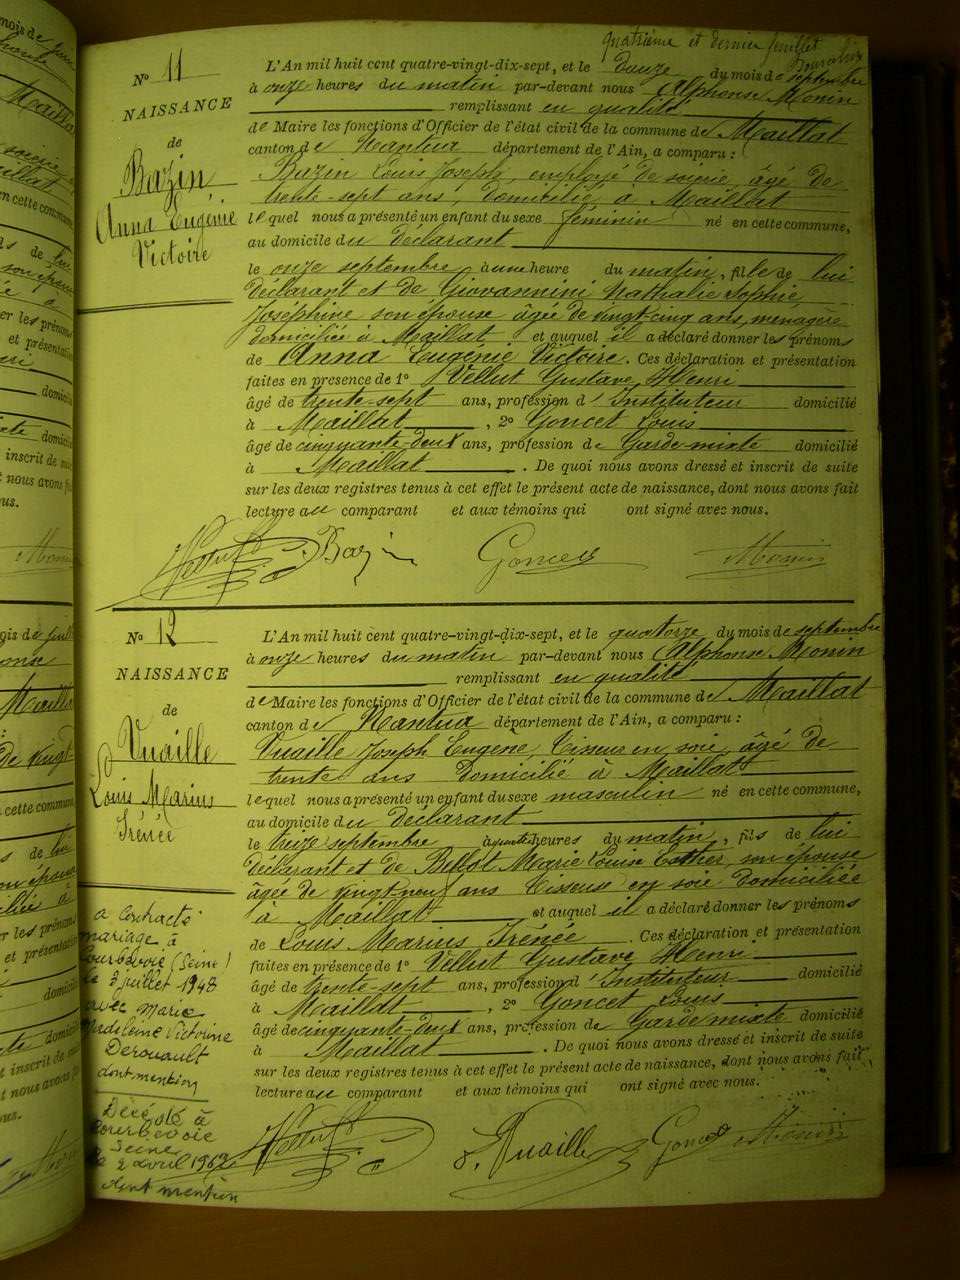 quatrième et dernier feuillet
Nº 11
NAISSANCE
de
Bazin
Anna Eugénie
Victoire
L'An mil huit cent quatre-vingt-dix-sept, et le douze du mois de septembre
à onze heures du matin par-devant nous Alphonse Monin
remplissant en qualité
de Maire les fonctions d'Officier de l'état civil de la commune de Maillat
canton de Nantua département de l'Ain, a comparu :
Bazin Louis Joseph, employé de soierie, âgé de
trente-sept ans, domicilié à Maillat
lequel nous a présenté un enfant du sexe féminin né en cette commune,
au domicile du déclarant
le onze septembre à une heure du matin, fille de lui
déclarant et de Giovannini Nathalie Sophie
Joséphine son épouse âgée de vingt-cinq ans, ménagère
domiciliée à Maillat, et auquel il a déclaré donner les prénoms
de Anna Eugénie Victoire. Ces déclaration et présentation
faites en présence de 1º Vellut Gustave Henri
âgé de trente-sept ans, profession d'Instituteur domicilié
à Maillat, 2º Goncet Louis
âgé de cinquante-deux ans, profession de Garde-mixte domicilié
à Maillat. De quoi nous avons dressé et inscrit de suite
sur les deux registres tenus à cet effet le présent acte de naissance, dont nous avons fait
lecture au comparant et aux témoins qui ont signé avec nous.
Vellut Bazin Goncet Monin
Nº 12
NAISSANCE
de
Vuaille
Louis Marius
Irénée
L'An mil huit cent quatre-vingt-dix-sept, et le quatorze du mois de septembre
à onze heures du matin par-devant nous Alphonse Monin
remplissant en qualité
de Maire les fonctions d'Officier de l'état civil de la commune de Maillat
canton de Nantua département de l'Ain, a comparu :
Vuaille Joseph Eugène, Tisseur en soie, âgé de
trente ans domicilié à Maillat
lequel nous a présenté un enfant du sexe masculin né en cette commune,
au domicile du déclarant
le treize septembre à quatre heures du matin, fils de lui
déclarant et de Billot Marie Louise Esther, son épouse
âgée de vingt-neuf ans Tisseuse en soie domiciliée
à Maillat et auquel il a déclaré donner les prénoms
de Louis Marius Irénée. Ces déclaration et présentation
faites en présence de 1º Vellut Gustave Henri
âgé de trente-sept ans, profession d'Instituteur domicilié
à Maillat, 2º Goncet Louis
âgé de cinquante-deux ans, profession de Garde mixte domicilié
à Maillat. De quoi nous avons dressé et inscrit de suite
sur les deux registres tenus à cet effet le présent acte de naissance, dont nous avons fait
lecture au comparant et aux témoins qui ont signé avec nous.
a contracté
mariage à
Courbevoie (Seine)
le 3 juillet 1948
avec Marie
Madeleine Victorine
Derouault
dont mention
Décédé à
Courbevoie
Seine
le 2 avril 1962
dont mention
Vellut J. Vuaille Goncet Monin